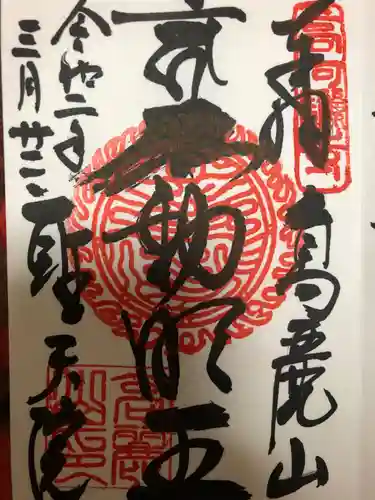 奉拝 高麗山
不動明王
令和二年
三月廿二日 聖天院